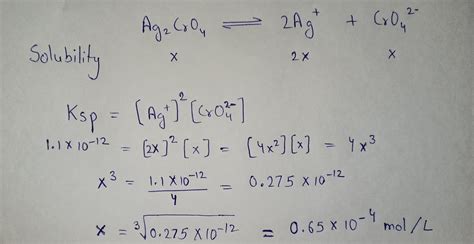 Ag₂CrO₄ ⇌ 2Ag⁺ + CrO₄²⁻
Solubility x 2x x
Ksp = [Ag⁺]² [CrO₄²⁻]
1.1 X 10⁻¹² = [2x]² [x] = [4x²][x] = 4x³
x³ = 1.1 X 10⁻¹² / 4 = 0.275 X 10⁻¹²
x = ³√0.275 X 10⁻¹² = 0.65 X 10⁻⁴ mol/L